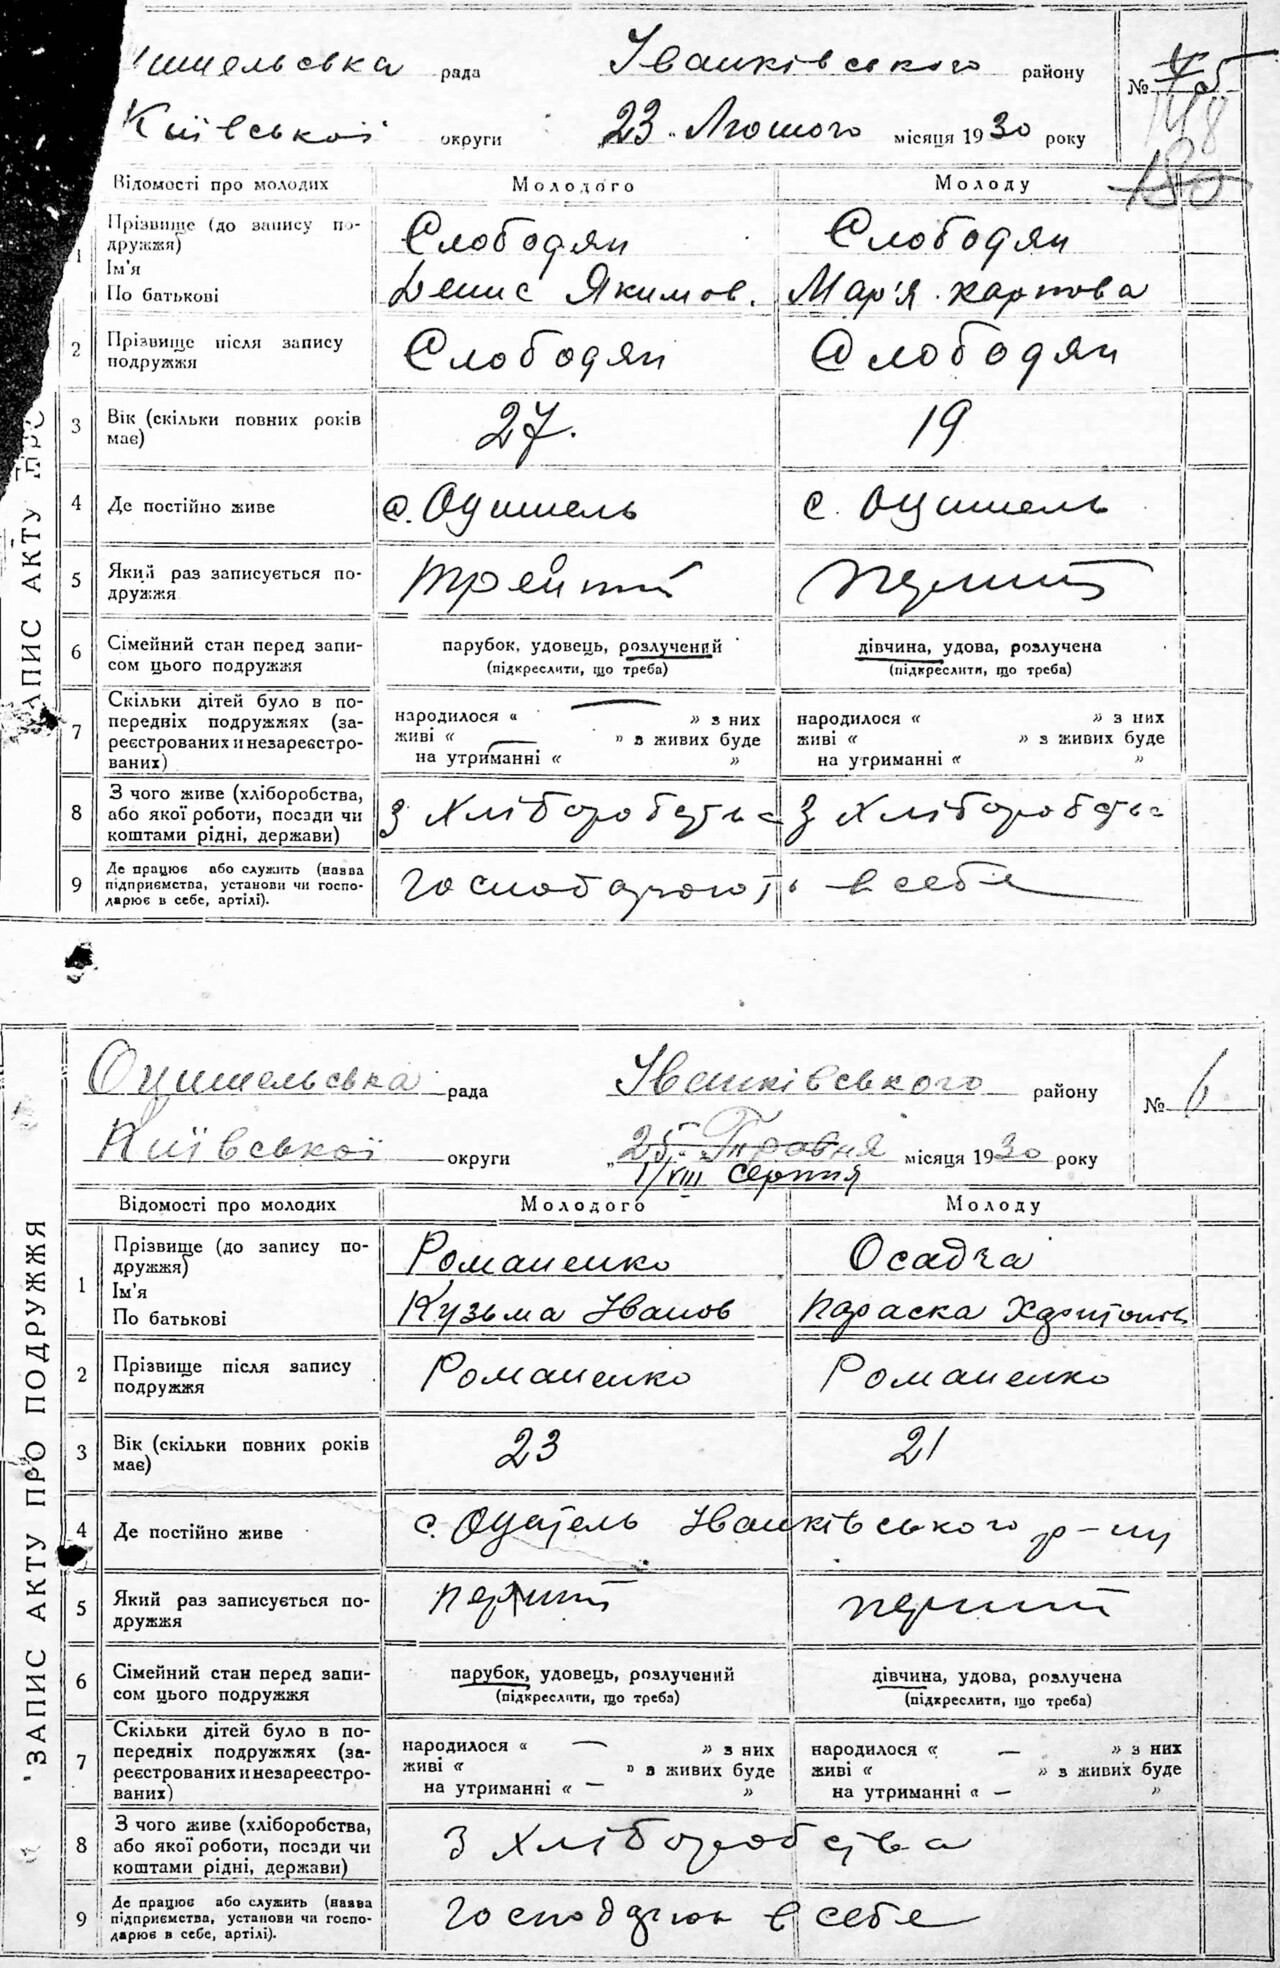 ишельська рада Іванківського району № 5
148
180
Київської округи „23“ Лютого місяця 1930 року
АПИС АКТУ ПРО
Відомості про молодих Молодого Молоду
1 Прізвище (до запису подружжя) Слободян Слободян
Ім'я
По батькові Денис Якимов. Мар'я Карпова
2 Прізвище після запису подружжя Слободян Слободян
3 Вік (скільки повних років має) 27. 19
4 Де постійно живе с. Оцишель с. Оцишель
5 Який раз записується подружжя третій перший
6 Сімейний стан перед записом цього подружжя парубок, удовець, розлучений (підкреслити, що треба) дівчина, удова, розлучена (підкреслити, що треба)
7 Скільки дітей було в попередніх подружжях (зареєстрованих и незареєстрованих) народилося « — » з них живі « — » з живих буде на утриманні « » народилося « » з них живі « » з живих буде на утриманні « »
8 З чого живе (хліборобства, або якої роботи, посади чи коштами рідні, держави) З Хліборобства З Хліборобства
9 Де працює або служить (назва підприємства, установи чи господарює в себе, артілі). господарюють в себе
ЗАПИС АКТУ ПРО ПОДРУЖЖЯ
Оцишельська рада Іванківського району № 6
Київської округи „25“ Травня місяця 1930 року
1/VIII Серпня
Відомості про молодих Молодого Молоду
1 Прізвище (до запису подружжя) Романенко Осадча
Ім'я
По батькові Кузьма Іванов Параска
2 Прізвище після запису подружжя Романенко Романенко
3 Вік (скільки повних років має) 23 21
4 Де постійно живе с. Оцитель Іванківського р-ну
5 Який раз записується подружжя перший перший
6 Сімейний стан перед записом цього подружжя парубок, удовець, розлучений (підкреслити, що треба) дівчина, удова, розлучена (підкреслити, що треба)
7 Скільки дітей було в попередніх подружжях (зареєстрованих и незареєстрованих) народилося « — » з них живі « » з живих буде на утриманні « — » народилося « — » з них живі « » з живих буде на утриманні « — »
8 З чого живе (хліборобства, або якої роботи, посади чи коштами рідні, держави) З хліборобства
9 Де працює або служить (назва підприємства, установи чи господарює в себе, артілі). в себе